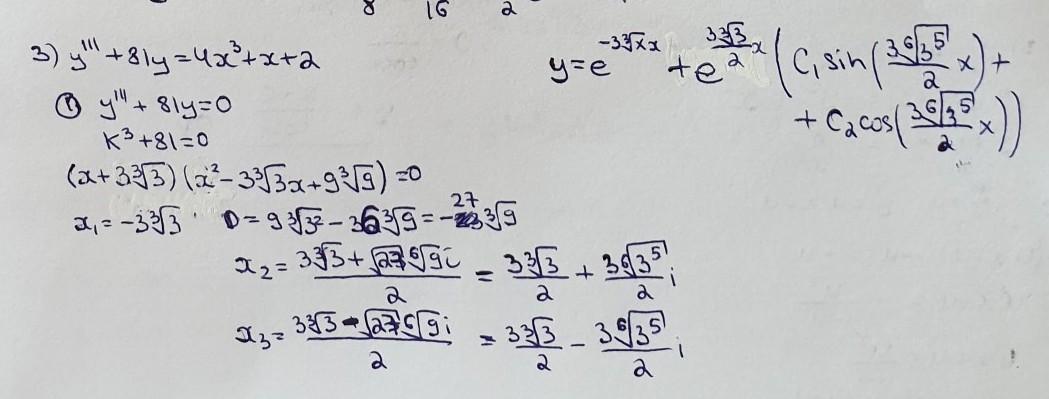 8 16 2
3) y''' + 81y = 4x³ + x + 2
① y''' + 81y = 0
k³ + 81 = 0
(x + 3∛3)(x² - 3∛3x + 9∛9) = 0
x₁ = -3∛3 D = 9∛3² - 36∛9 = -27∛9
x₂ = (3∛3 + √27 ⁶√9i)/2 = 3∛3/2 + (3⁶√3⁵)/2 i
x₃ = (3∛3 - √27 ⁶√9i)/2 = 3∛3/2 - (3⁶√3⁵)/2 i
y = e^(-3∛x x) + e^((3∛3/2)x) (C₁ sin((3⁶√3⁵)/2 x) +
+ C₂ cos((3⁶√3⁵)/2 x))